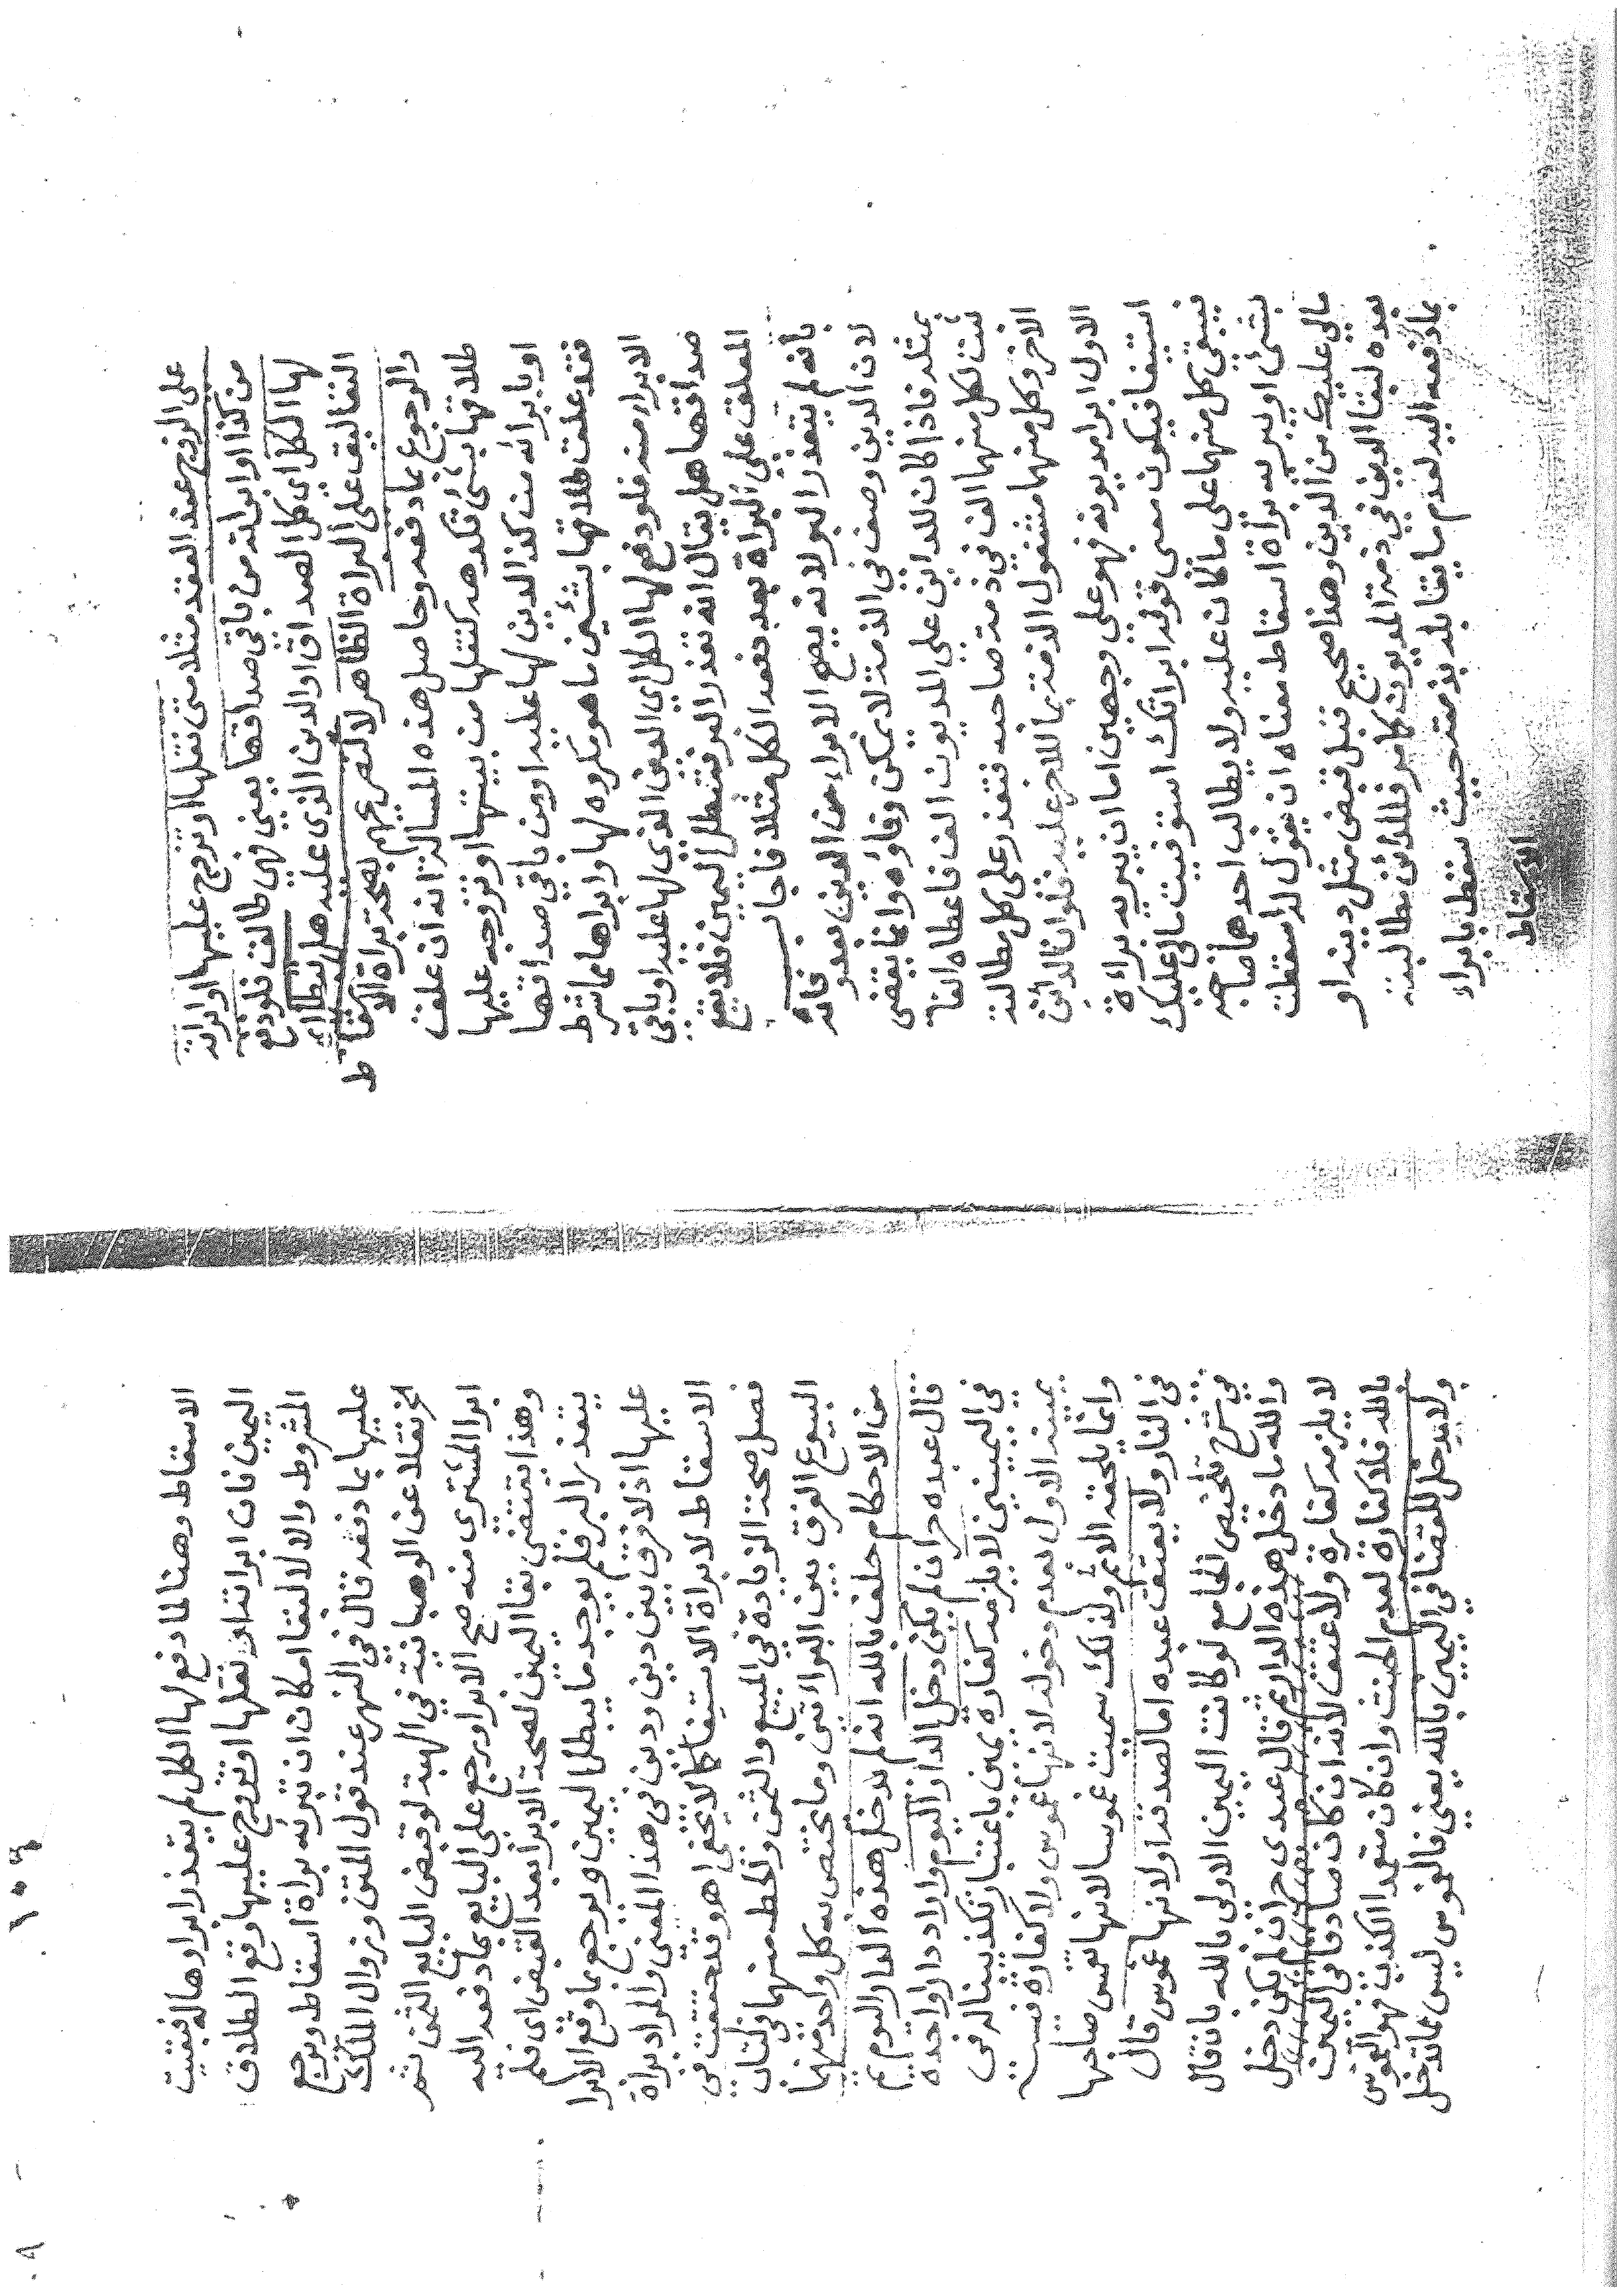 على الزوج عند العقد مثلا متى نقلها او تزوج عليها او ابراته
من كذا او ابراته من باقي صداقها يعني فهي طالق فلو دفع
لها الكل اي كل الصداق او الدين الذي عليه هل تبطل اي
التعاليق على البراة الظاهر لا لتصريحهم بصحة براة الاسقاط
والرجوع بما دفعه وحاصل هذه المسالة انه ان علق
طلاقها بشئ تكرهه كنقلها من بيتها او تزوجه عليها
او بابرائه من كذا لدين لها عليه او من باقي صداقها
فقد علق طلاقها بشئين ما هو مكروه لها وابراها مما شرط
الابراء منه فلو دفع لها الكل اي المعين الذي لها عليه او باقي
صداقها هل يقال انه تعذر البر فتبطل اليمين فلا يقع
المعلق على البراة بعد نقد الكل مثلا فاجاب
بانه لم يتعذر البر لانه يصح الابراء من الدين بعد وفائه
لان الدين وصف في الذمة لا يمكن وفاؤه وانما يقضى
بمثله فاذا كان للداين على المديون الف فاعطاه الفا
ثبت لكل منهما الف في ذمة صاحبه فتعذر على كل مطالبة
الاخر وكل منهما مشغول الذمة بما للاخر عليه فلو ان الداين
الاول ابرا مديونه فهو على وجهين اما ان يبريه براءة
استيفا فيكون معنى قوله ابراتك استوفيت مالي عليك
فيبقى كل منهما على ما كان عليه ولا يطالب احدهما صاحبه
بشئ او يبريه براة اسقاط معناه ان يقول له اسقطت
مالي عليك من الدين وهذا صحيح قبل قبض مثل دينه او
بعده لبقا الدين في ذمة المديون كما مر فللدائن مطالبته
بما دفعه اليه لعدم ما يقابله بذمته حيث سقط بابراء
الاسقاط
الاسقاط وهنا لما دفع لها الكل لم يتعذر ابراوها له فبقيت
اليمين فان ابراته او نقلها او تزوج عليها وقع الطلاق
المشروط والا لا لبقا امكان ان تبرئه براة اسقاط ويرجع
عليها بما دفعه قال في النهر عند قول المتن وزوال الملك
الخ نقلا عن الوهبانية في الهبة لو قبض البايع الثمن ثم
ابرا المشتري منه صح الابرا ورجع على البايع بما دفعه اليه
وهذا يقتضي بقا اليمين لصحة الابرا بعد القبض اي فلم
يتعذر البر فلم يوجد ما يبطل اليمين ويرجع بما وقع الابرا
عليها اذ لا فرق بين دين ودين في هذا المعنى والمراد براة
الاسقاط لا براة الاستيفا كما لا يخفى اهـ وقد حققت في
فصل صحة الزيادة في المبيع والثمن والحط منهما في كتاب
البيوع الفرق بين البراءتين وما يختص به كل واحد منهما
من الاحكام حلف بالله انه لم يدخل هذه الدار اليوم ثم
قال عبده حر ان لم يكن دخل الدار اليوم واراد دارا واحدة
في اليمينين لا يلزمه كفارة يمين باعتبار تكذيبنا له في
يمينه الاول بعدم دخوله لانها غموس ولا كفارة فيه
وانما يلحقه الاثم ولذلك سميت غموسا لانها تغمس صاحبها
في النار ولا يعتق عبده اما لصدقه او لانها غموس قال
في شرح تلخيص الجامع لو كانت اليمين الاولى بالله بان قال
والله ما دخل هذه الدار ثم قال عبدي حر ان لم يكن دخل
لا يلزمه كفارة ولا عتق لانه ان كان صادقا في اليمين
بالله فلا كفارة لعدم الحنث وان كان متعمدا الكذب فهو الغموس
ولا مدخل للقضا في اليمين بالله يعني فالغموس ليس مما تدخل
١٠٥٤